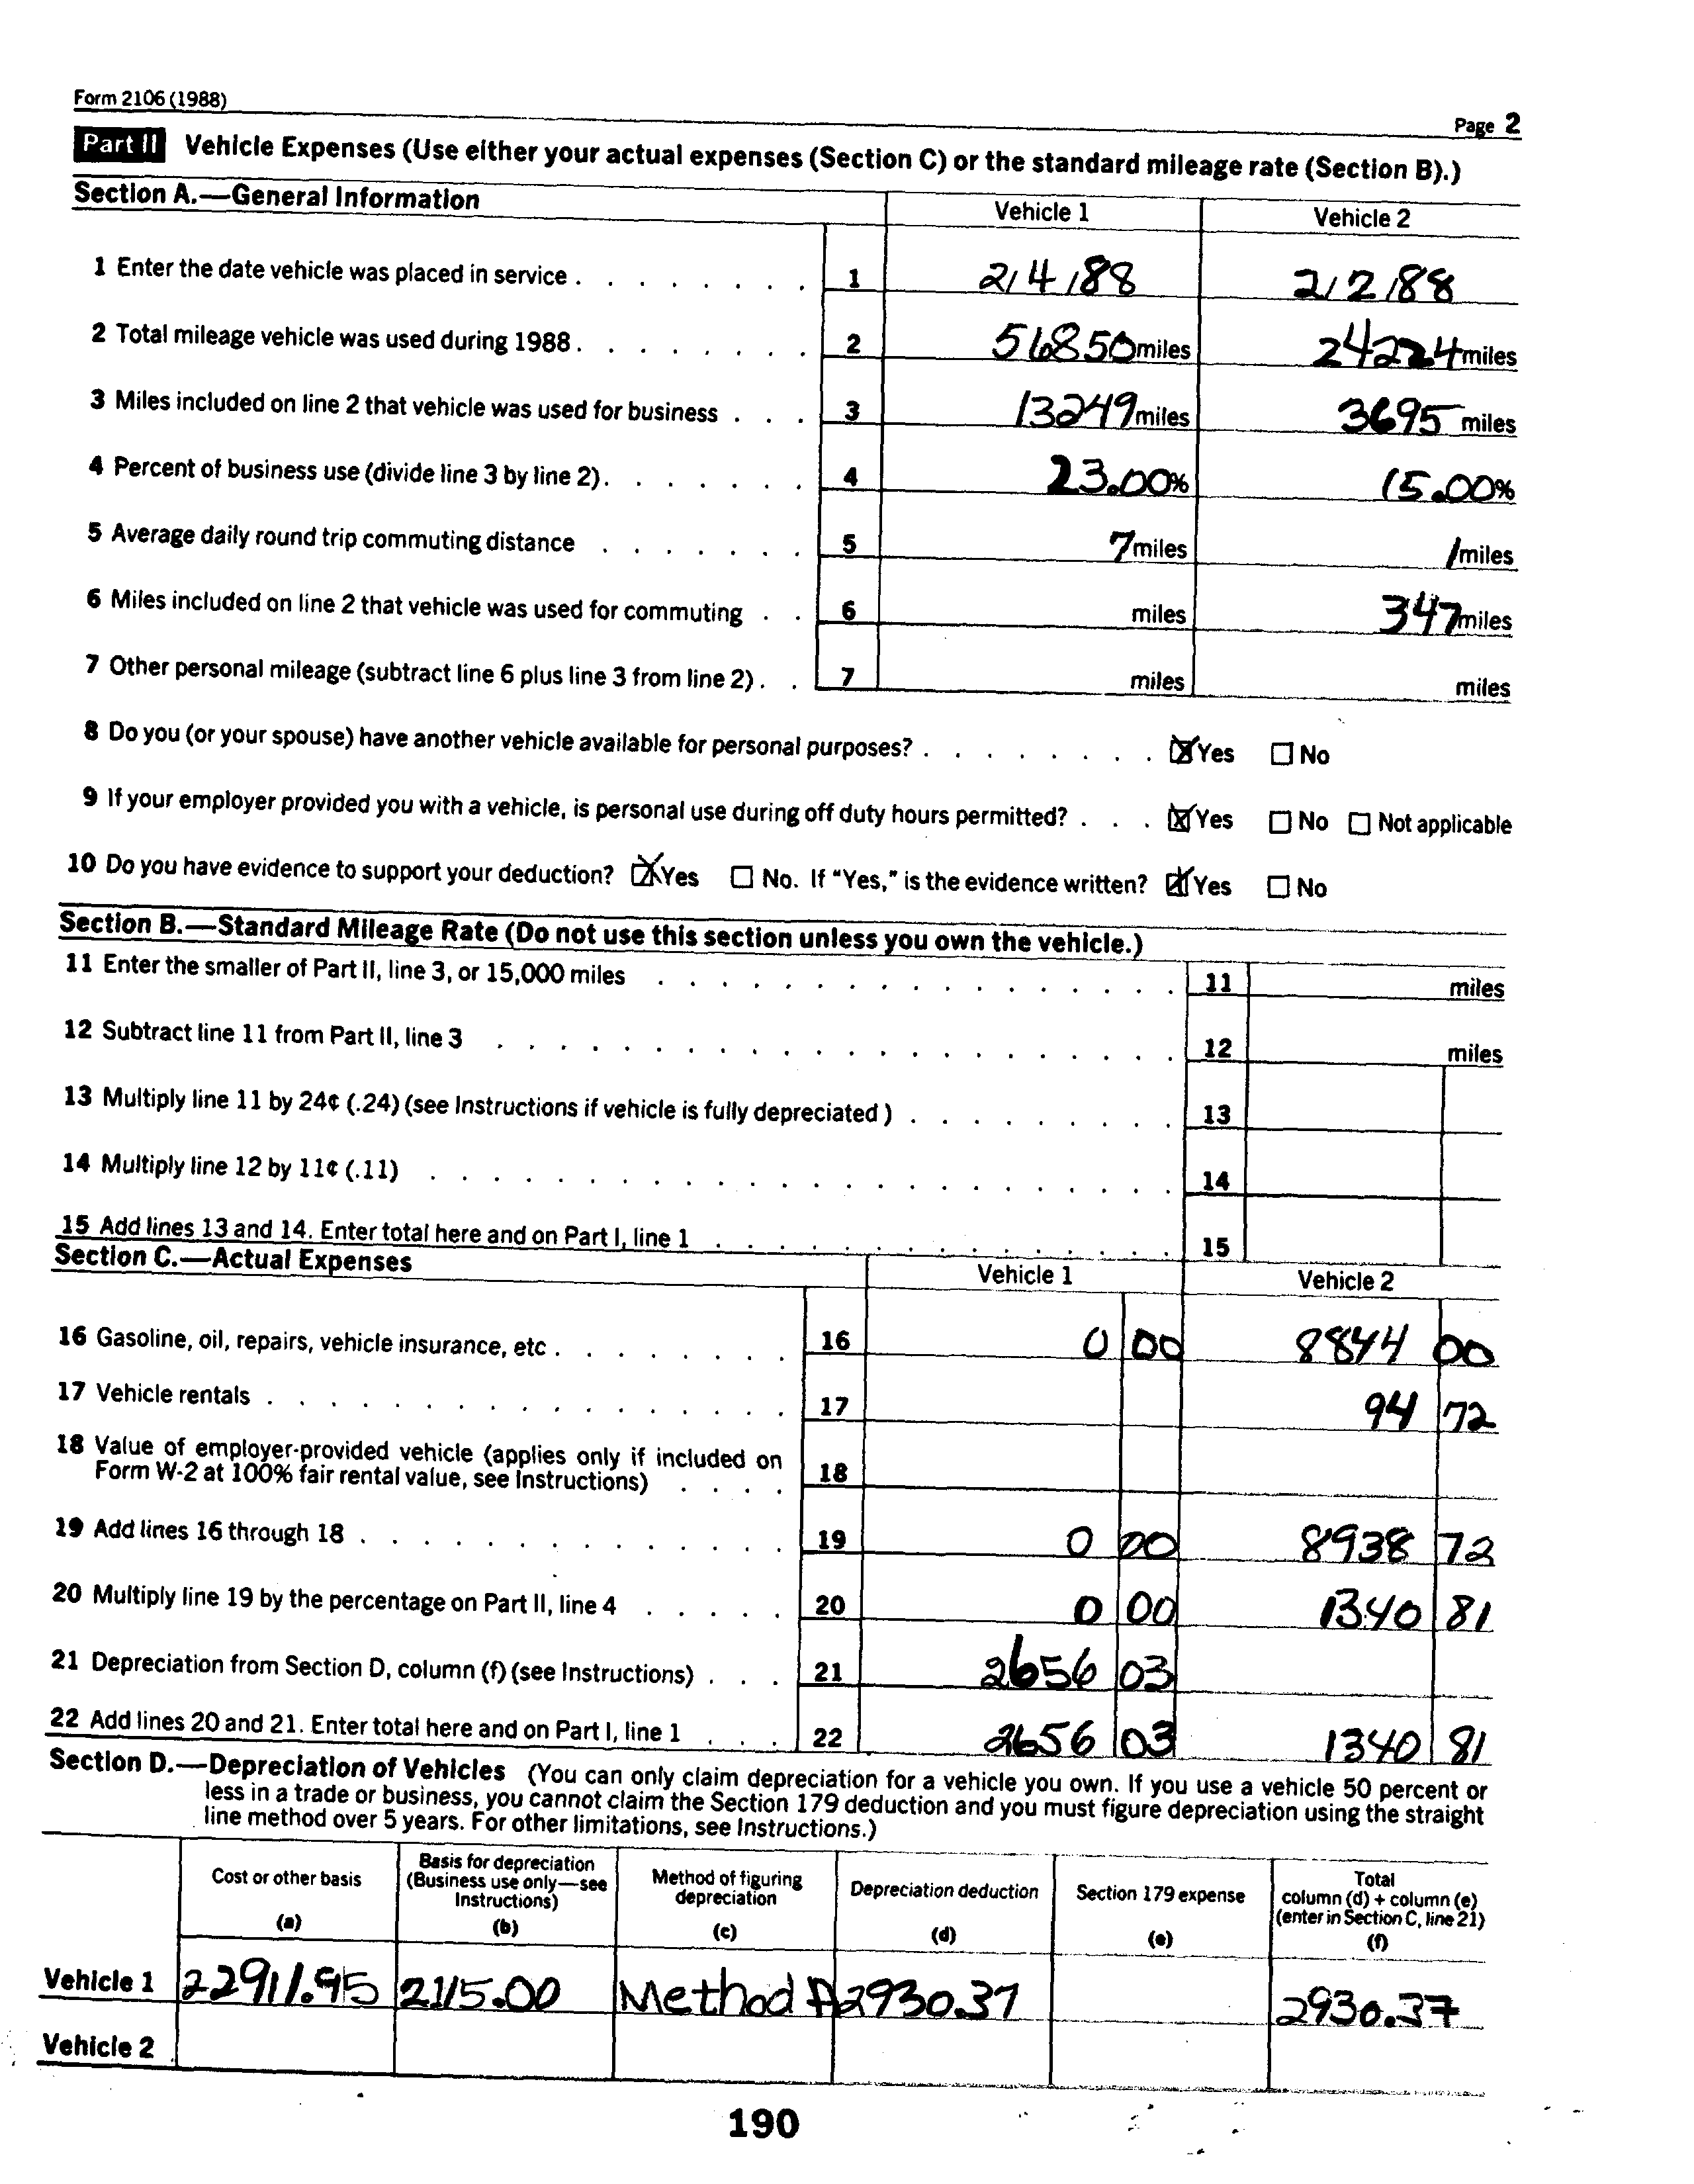 Form 2106 (1988)
Page 2
Part II Vehicle Expenses (Use either your actual expenses (Section C) or the standard mileage rate (Section B).)
Section A.—General Information
Vehicle 1 Vehicle 2
1 Enter the date vehicle was placed in service . . . . . . . . 1 2/4/88 2/2/88
2 Total mileage vehicle was used during 1988 . . . . . . . . 2 56850 miles 24224 miles
3 Miles included on line 2 that vehicle was used for business . . . 3 13249 miles 3695 miles
4 Percent of business use (divide line 3 by line 2) . . . . . . . 4 23.00% 15.00%
5 Average daily round trip commuting distance . . . . . . . 5 7 miles 1 miles
6 Miles included on line 2 that vehicle was used for commuting . . 6 miles 347 miles
7 Other personal mileage (subtract line 6 plus line 3 from line 2) . . 7 miles miles
8 Do you (or your spouse) have another vehicle available for personal purposes? . . . . . . . . ☒ Yes ☐ No
9 If your employer provided you with a vehicle, is personal use during off duty hours permitted? . . . ☒ Yes ☐ No ☐ Not applicable
10 Do you have evidence to support your deduction? ☒ Yes ☐ No. If "Yes," is the evidence written? ☒ Yes ☐ No
Section B.—Standard Mileage Rate (Do not use this section unless you own the vehicle.)
11 Enter the smaller of Part II, line 3, or 15,000 miles . . . . . . . . . . . . . . . . 11 miles
12 Subtract line 11 from Part II, line 3 . . . . . . . . . . . . . . . . . . . . . 12 miles
13 Multiply line 11 by 24¢ (.24) (see Instructions if vehicle is fully depreciated ) . . . . . . . . . 13
14 Multiply line 12 by 11¢ (.11) . . . . . . . . . . . . . . . . . . . . . . . 14
15 Add lines 13 and 14. Enter total here and on Part I, line 1 . . . . . . . . . . . . . . 15
Section C.—Actual Expenses
Vehicle 1 Vehicle 2
16 Gasoline, oil, repairs, vehicle insurance, etc . . . . . . . . 16 0 00 8844 00
17 Vehicle rentals . . . . . . . . . . . . . . . . . 17 94 72
18 Value of employer-provided vehicle (applies only if included on
Form W-2 at 100% fair rental value, see Instructions) . . . . 18
19 Add lines 16 through 18 . . . . . . . . . . . . . . 19 0 00 8938 72
20 Multiply line 19 by the percentage on Part II, line 4 . . . . . 20 0 00 1340 81
21 Depreciation from Section D, column (f) (see Instructions) . . . 21 2656 03
22 Add lines 20 and 21. Enter total here and on Part I, line 1 . . . 22 2656 03 1340 81
Section D.—Depreciation of Vehicles (You can only claim depreciation for a vehicle you own. If you use a vehicle 50 percent or
less in a trade or business, you cannot claim the Section 179 deduction and you must figure depreciation using the straight
line method over 5 years. For other limitations, see Instructions.)
Cost or other basis
(a)
Basis for depreciation
(Business use only—see
Instructions)
(b)
Method of figuring
depreciation
(c)
Depreciation deduction
(d)
Section 179 expense
(e)
Total
column (d) + column (e)
(enter in Section C, line 21)
(f)
Vehicle 1 22911.95 2115.00 Method A 2930.37 2930.37
Vehicle 2
190